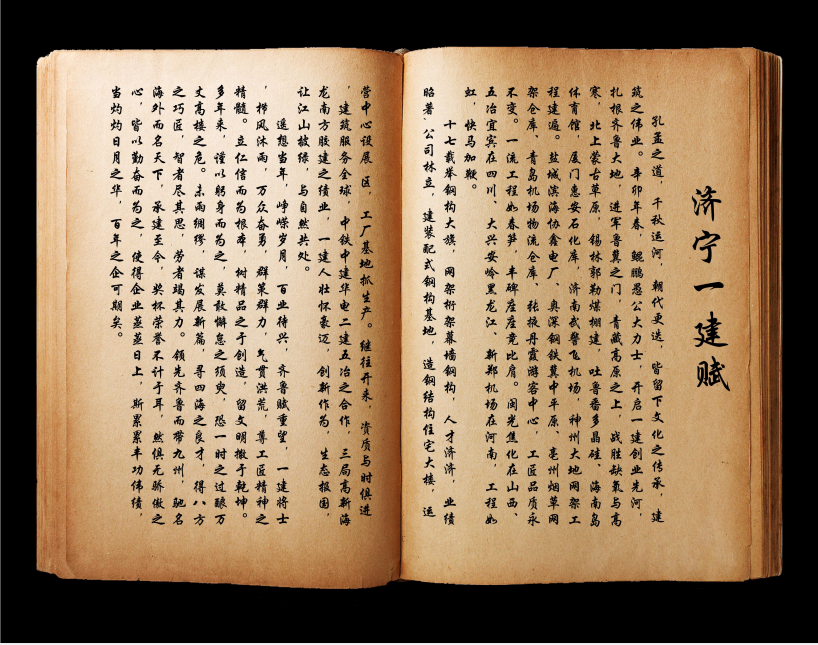 济宁一建赋
孔孟之道，千秋运河，朝代更迭，皆留下文化之传承，建
筑之伟业。辛卯年春，鲲鹏愚公大力士，开启一建创业先河，
扎根齐鲁大地，进军鲁冀之门，青藏高原之上，战胜缺氧与高
寒，北上蒙古草原，锡林郭勒煤棚建，吐鲁番多晶硅、海南岛
体育馆，厦门惠安石化库，济南武警飞机场，神州大地网架工
程建遍。盐城滨海协鑫电厂、奥深钢铁冀中平原、亳州烟草网
架仓库，青岛机场物流仓库、张掖丹霞游客中心，工匠品质永
不变。一流工程如春笋，丰碑座座竞比肩。闽光焦化在山西、
五冶宜宾在四川、大兴安岭黑龙江、新郑机场在河南，工程如
虹，快马加鞭。
十七载举钢构大旗，网架桁架幕墙钢构，人才济济，业绩
昭著，公司林立，建装配式钢构基地，造钢结构住宅大楼，运
营中心设展区，工厂基地抓生产。继往开来，资质与时俱进
，建筑服务全球，中铁中建华电二建五冶之合作，三局高新海
龙南方股建之绩业，一建人壮怀豪迈，创新作为，生态报国，
让江山披绿，与自然共处。
遥想当年，峥嵘岁月，百业待兴，齐鲁赋重望，一建将士
，栉风沐雨，万众奋勇，群策群力，气贯洪荒，尊工匠精神之
精髓。立仁信而为根本，树精品之于创造，留文明撒于乾坤。
多年来，谨以躬身而为之，莫敢懈怠之须臾，恐一时之过酿万
丈高楼之危。未雨绸缪，谋发展新篇，寻四海之良才，得八方
之巧匠，智者尽其思，劳者竭其力。领先齐鲁而带九州，驰名
海外而名天下，承建至今，奖杯荣誉不计于耳，然俱无骄傲之
心，皆以勤奋而为之，使得企业蒸蒸日上，斯累累丰功伟绩，
当灼灼日月之华，百年之企可期矣。